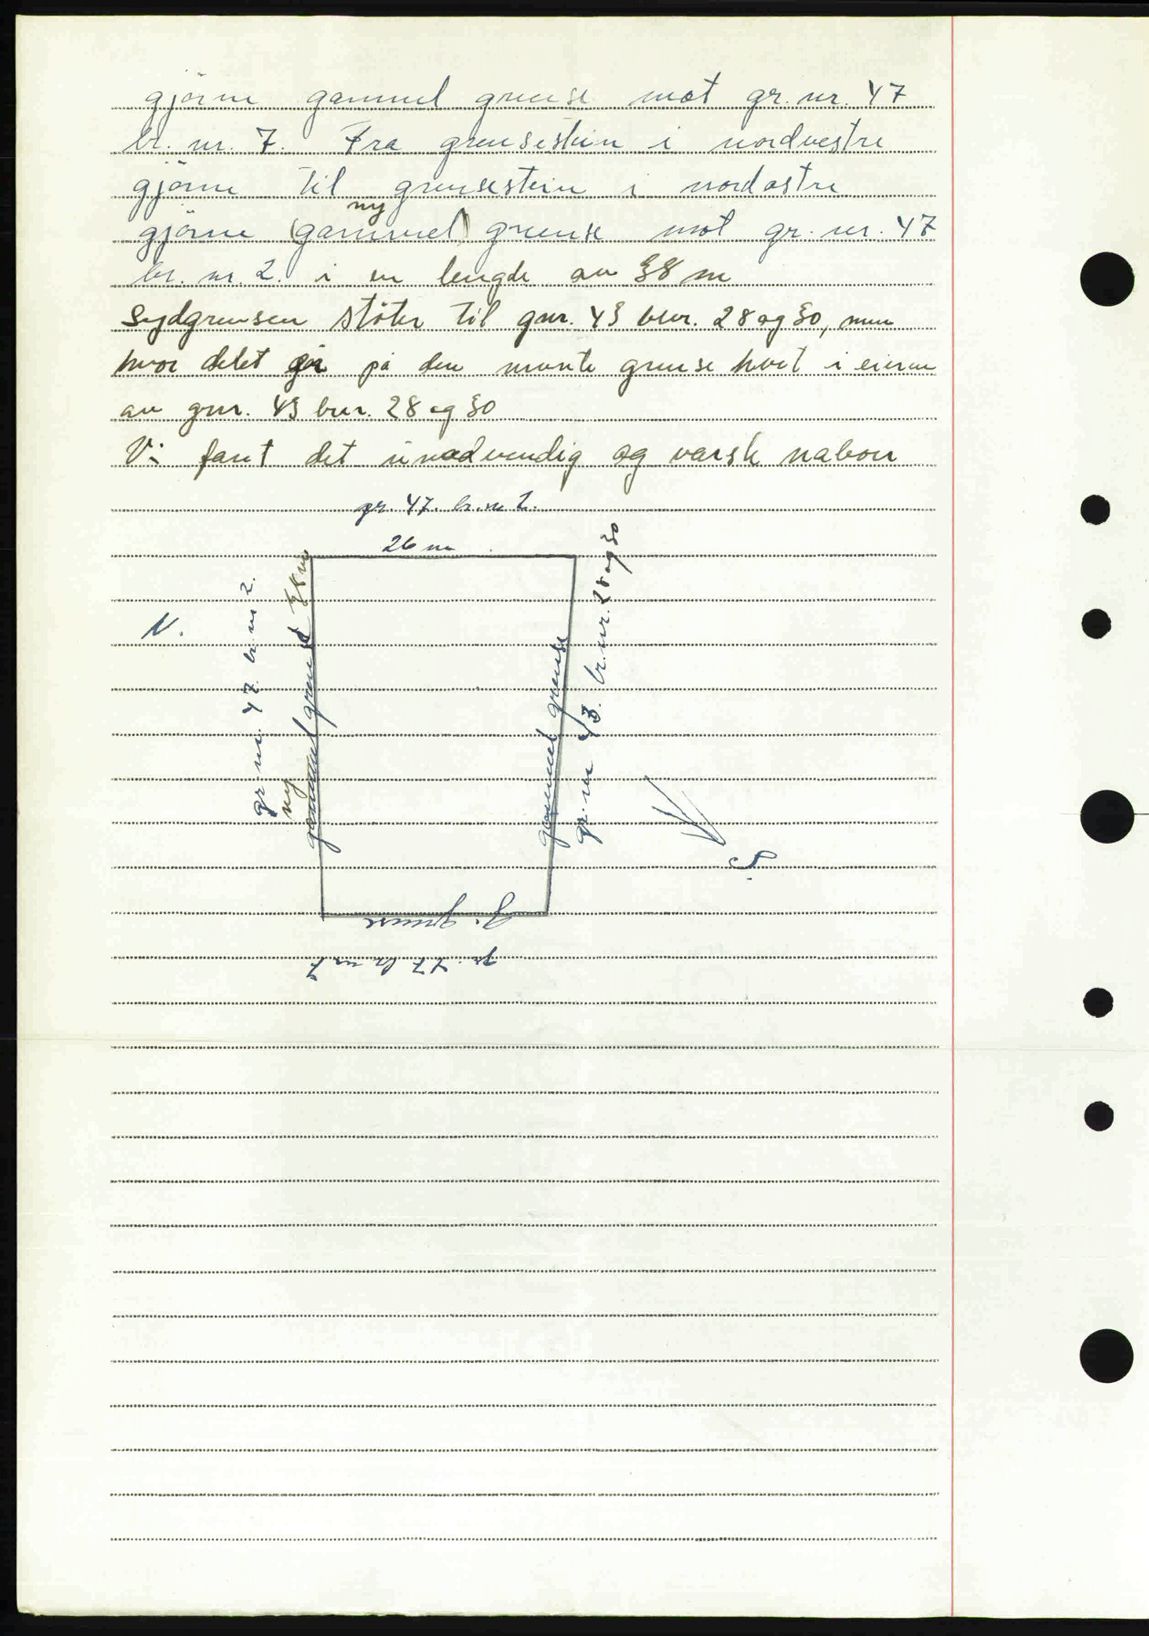 gjörne gammel grense mot gr. nr. 47
br. nr. 7. Fra grensestein i nordvestre
gjörne til grensestein i nordostre
ny
gjörne (gammel) grense mot gr. nr. 47
br. nr. 2. i en lengde av 38 m
Sydgrensen støter til gnr. 43 bnr. 28 og 30, men
hvor delet går på den
grense
i eieren
av gnr. 43 bnr. 28 og 30
Vi fant det unødvendig og varsle naboer
gr. 47. br. nr 2.
26 m
gr nr. 47. br. nr 2.
ny
gammel grense 38 m
N.
gammel grense
gr. nr 43. br. nr. 28 og 30
S.
g. grense
gr. 47 br nr 7